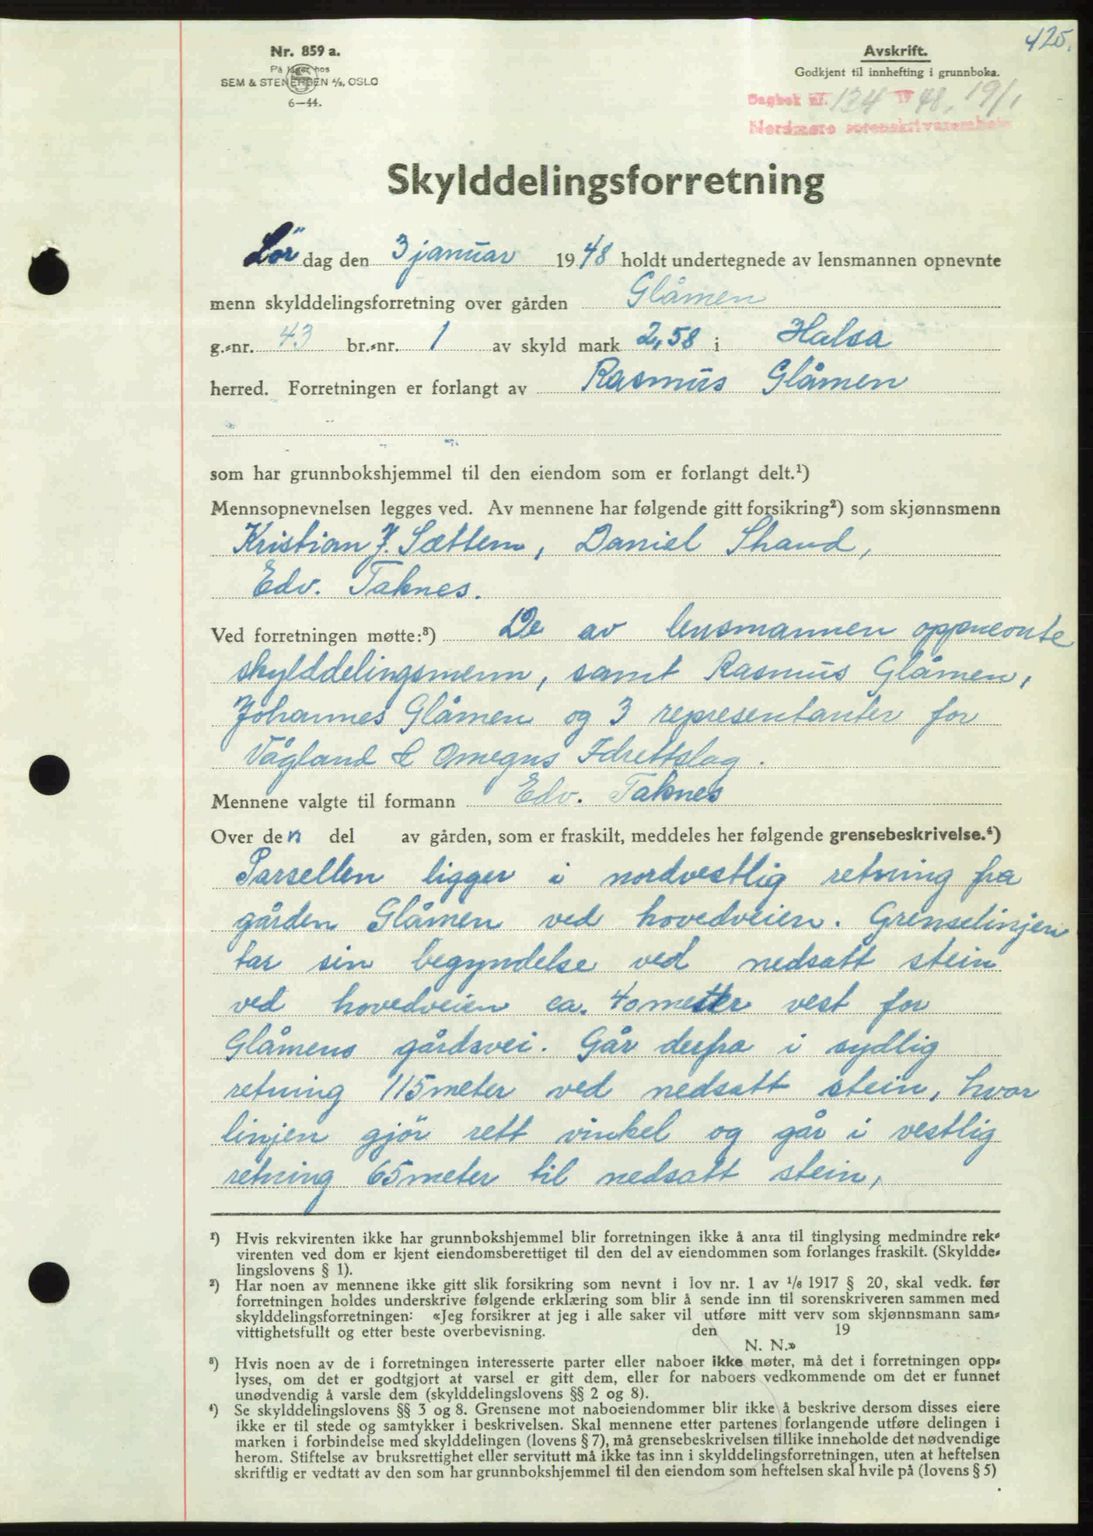 425.
Nr. 859 a.
På lager hos
SEM & STENERSEN A/S, OSLO
6—44.
Avskrift.
Godkjent til innhefting i grunnboka.
Dagbok nr. 134 19 48, 19/1
Nordmøre sorenskriverembete
Skylddelingsforretning
Lör dag den 3 januar 1948 holdt undertegnede av lensmannen opnevnte
menn skylddelingsforretning over gården Glåmen
g.-nr. 43 br.-nr. 1 av skyld mark 2,58 i Halsa
herred. Forretningen er forlangt av Rasmus Glåmen
som har grunnbokshjemmel til den eiendom som er forlangt delt.¹)
Mennsopnevnelsen legges ved. Av mennene har følgende gitt forsikring²) som skjønnsmenn
Kristian J. Sættem, Daniel Strand,
Edv. Taknes.
Ved forretningen møtte:³) De av lensmannen oppnevnte
skylddelingsmenn, samt Rasmus Glåmen,
Johannes Glåmen og 3 representanter for
Vågland & Omegns Idrettslag.
Mennene valgte til formann Edv. Taknes
Over den del av gården, som er fraskilt, meddeles her følgende grensebeskrivelse.⁴)
Parsellen ligger i nordvestlig retning fra
gården Glåmen ved hovedveien. Grenselinjen
tar sin begyndelse ved nedsatt stein
ved hovedveien ca. 40 meter vest for
Glåmens gårdsvei. Går derfra i sydlig
retning 115 meter ved nedsatt stein, hvor
linjen gjör rett vinkel og går i vestlig
retning 65 meter til nedsatt stein,
¹) Hvis rekvirenten ikke har grunnbokshjemmel blir forretningen ikke å anta til tinglysing medmindre rek-
virenten ved dom er kjent eiendomsberettiget til den del av eiendommen som forlanges fraskilt. (Skyldde-
lingslovens § 1).
²) Har noen av mennene ikke gitt slik forsikring som nevnt i lov nr. 1 av 1/6 1917 § 20, skal vedk. før
forretningen holdes underskrive følgende erklæring som blir å sende inn til sorenskriveren sammen med
skylddelingsforretningen: «Jeg forsikrer at jeg i alle saker vil utføre mitt verv som skjønnsmann sam-
vittighetsfullt og etter beste overbevisning. den 19
N. N.»
³) Hvis noen av de i forretningen interesserte parter eller naboer ikke møter, må det i forretningen opp-
lyses, om det er godtgjort at varsel er gitt dem, eller for naboers vedkommende om det er funnet
unødvendig å varsle dem (skylddelingslovens §§ 2 og 8).
⁴) Se skylddelingslovens §§ 3 og 8. Grensene mot naboeiendommer blir ikke å beskrive dersom disses eiere
ikke er til stede og samtykker i beskrivelsen. Skal mennene etter partenes forlangende utføre delingen i
marken i forbindelse med skylddelingen (lovens § 7), må grensebeskrivelsen tillike inneholde det nødvendige
herom. Stiftelse av bruksrettighet eller servitutt må ikke tas inn i skylddelingsforretningen, uten at heftelsen
skriftlig er vedtatt av den som har grunnbokshjemmel til den eiendom som heftelsen skal hvile på (lovens § 5)